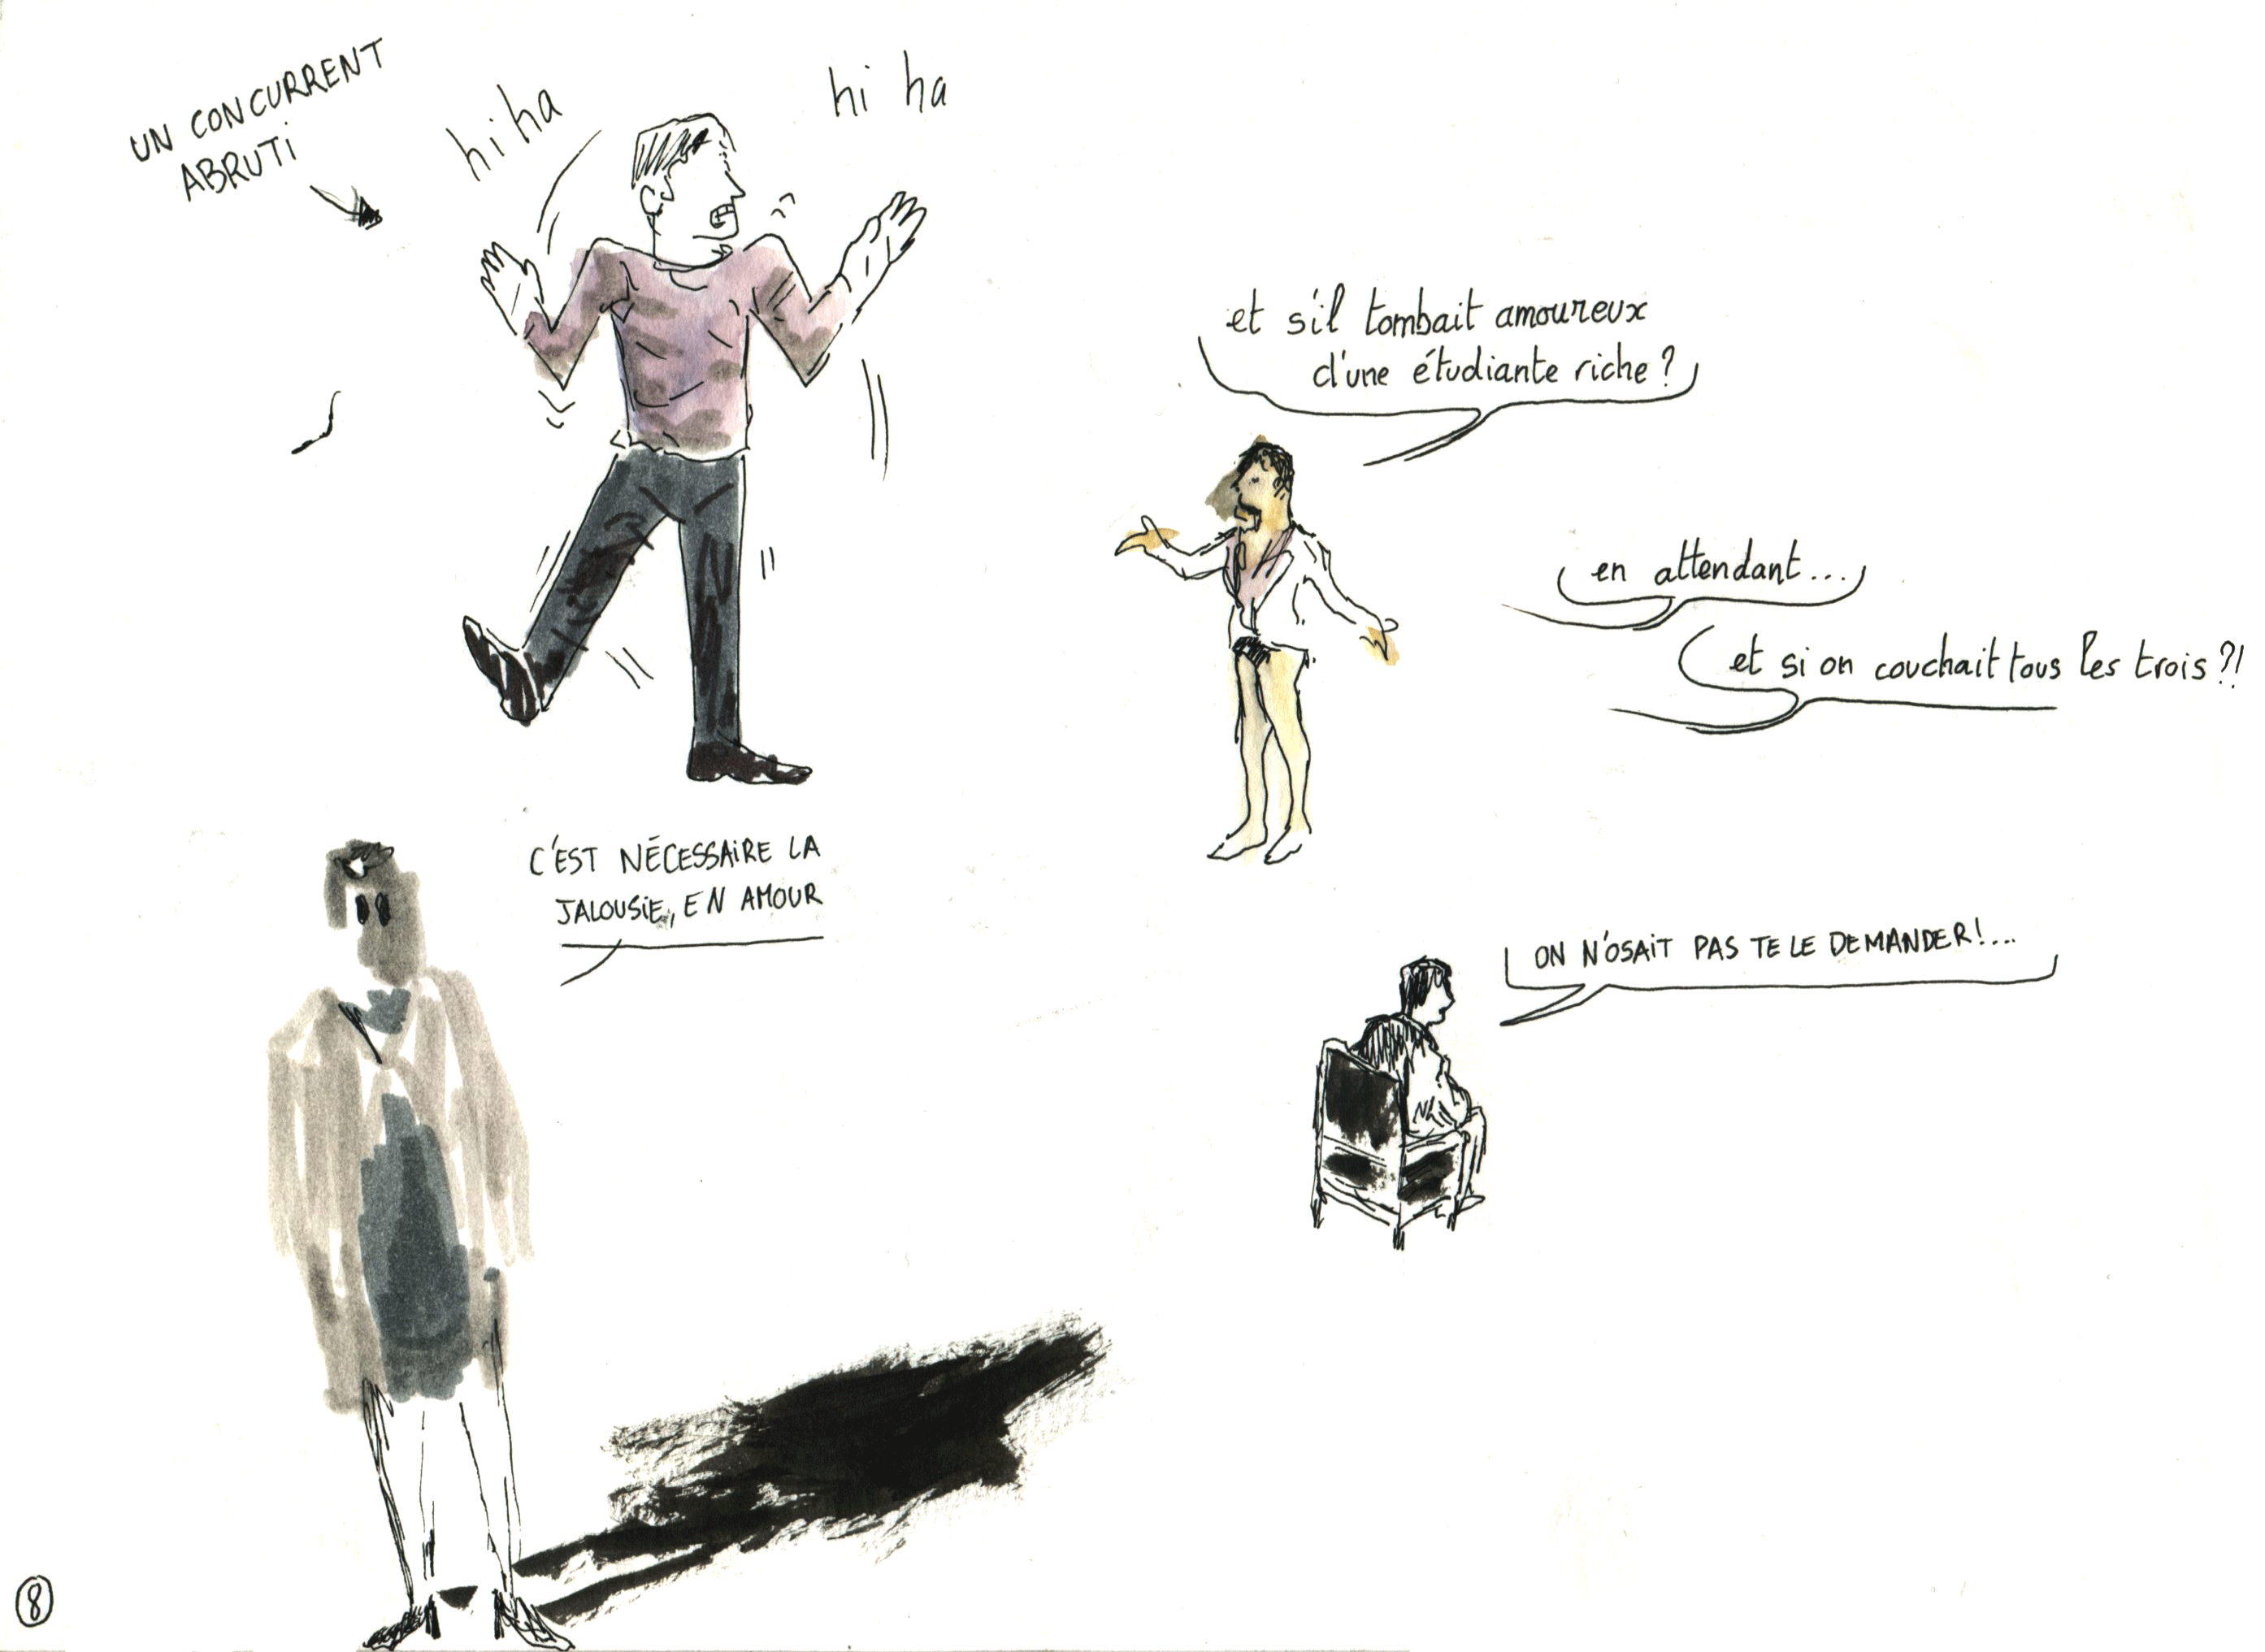 UN CONCURRENT
ABRUTI
hi ha
hi ha
et s'il tombait amoureux
d'une étudiante riche ?
en attendant...
et si on couchait tous les trois ?!
C'EST NÉCESSAIRE LA
JALOUSIE, EN AMOUR
ON N'OSAIT PAS TE LE DEMANDER !...
8